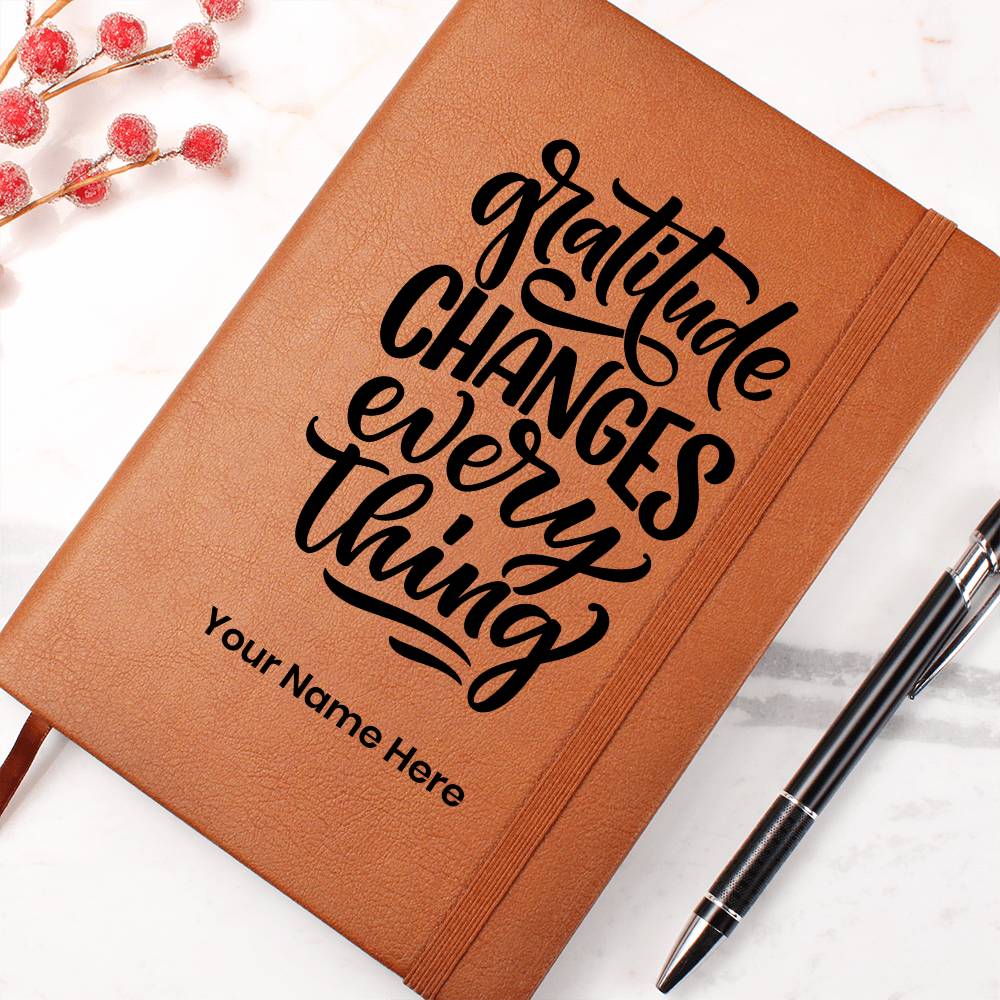 gratitude
CHANGES
every
thing
Your Name Here